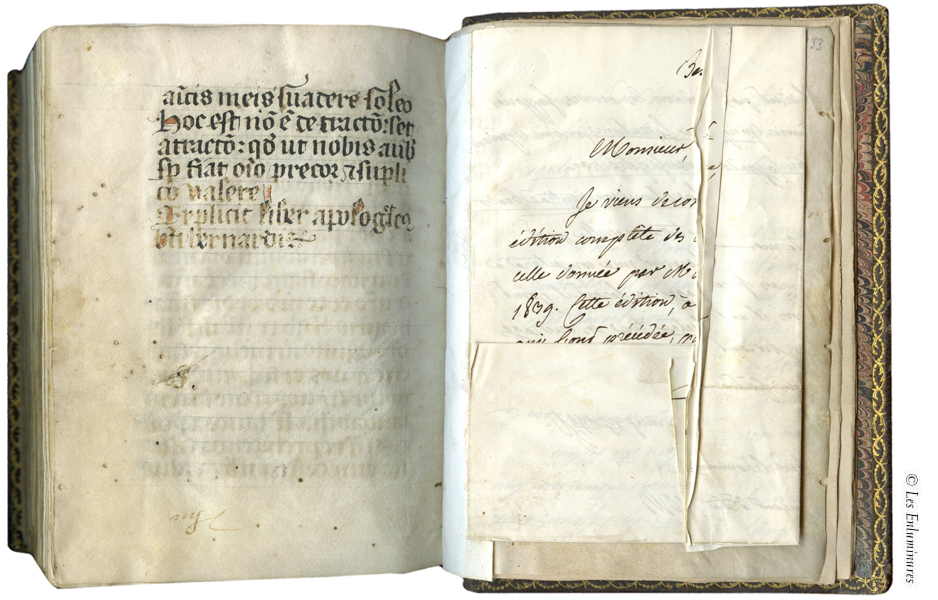 aūcis meis suadere soleo
Hoc est nō ē detractō: set
attractō: qd ut nobis aub
sp fiat oīo precor ⁊ supli
co valere
Explicit liber apologeticꝰ
bti bernardi
33
Monsieur,
Je viens de con
édition complete des
celle donnée par M
1839. Cette édition, a
qui l'ont précédée,
© Les Enluminures